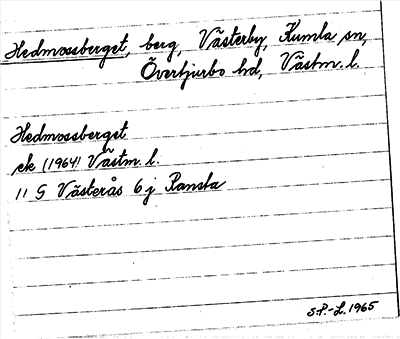 Hedmossberget, berg, Västerby, Kumla sn,
Övertjurbo hd, Västm. l.
Hedmossberget
ek (1964) Västm. l.
11 G Västerås 6 j Ransta
S.P.-L. 1965